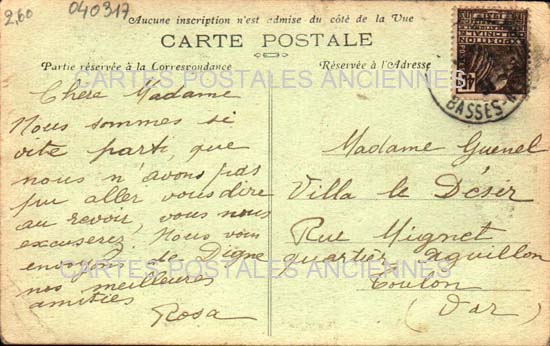 2,60
040317
Aucune inscription n'est admise du côté de la Vue
CARTE POSTALE
Partie réservée à la Correspondance
Réservée à l'Adresse
CARTES POSTALES ANCIENNES
Chère Madame
Nous sommes si
vite parti, que
nous n'avons pas
pu aller vous dire
au revoir, vous nous
excuserez, Nous vous
envoyons de Digne
nos meilleures
amitiés
Rosa
Madame Guenel
Villa le Désir
Rue Mignet
quartier aguillon
Toulon
(Var)
BASSES-
CARTES POSTALES ANCIENNES